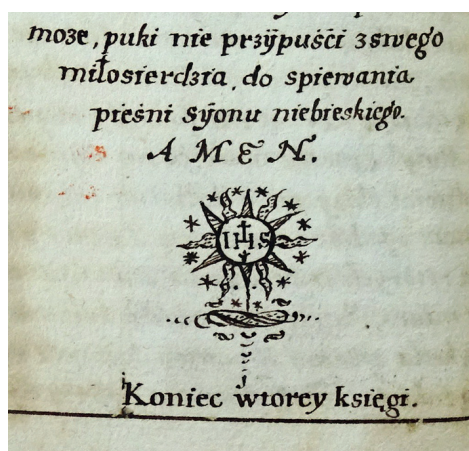 może, puki nie przÿpuśći zswego
miłosierdzia, do spiewania
pieśni sÿonu niebieskiego.
AMEN.
IHS
Koniec wtorey księgi.